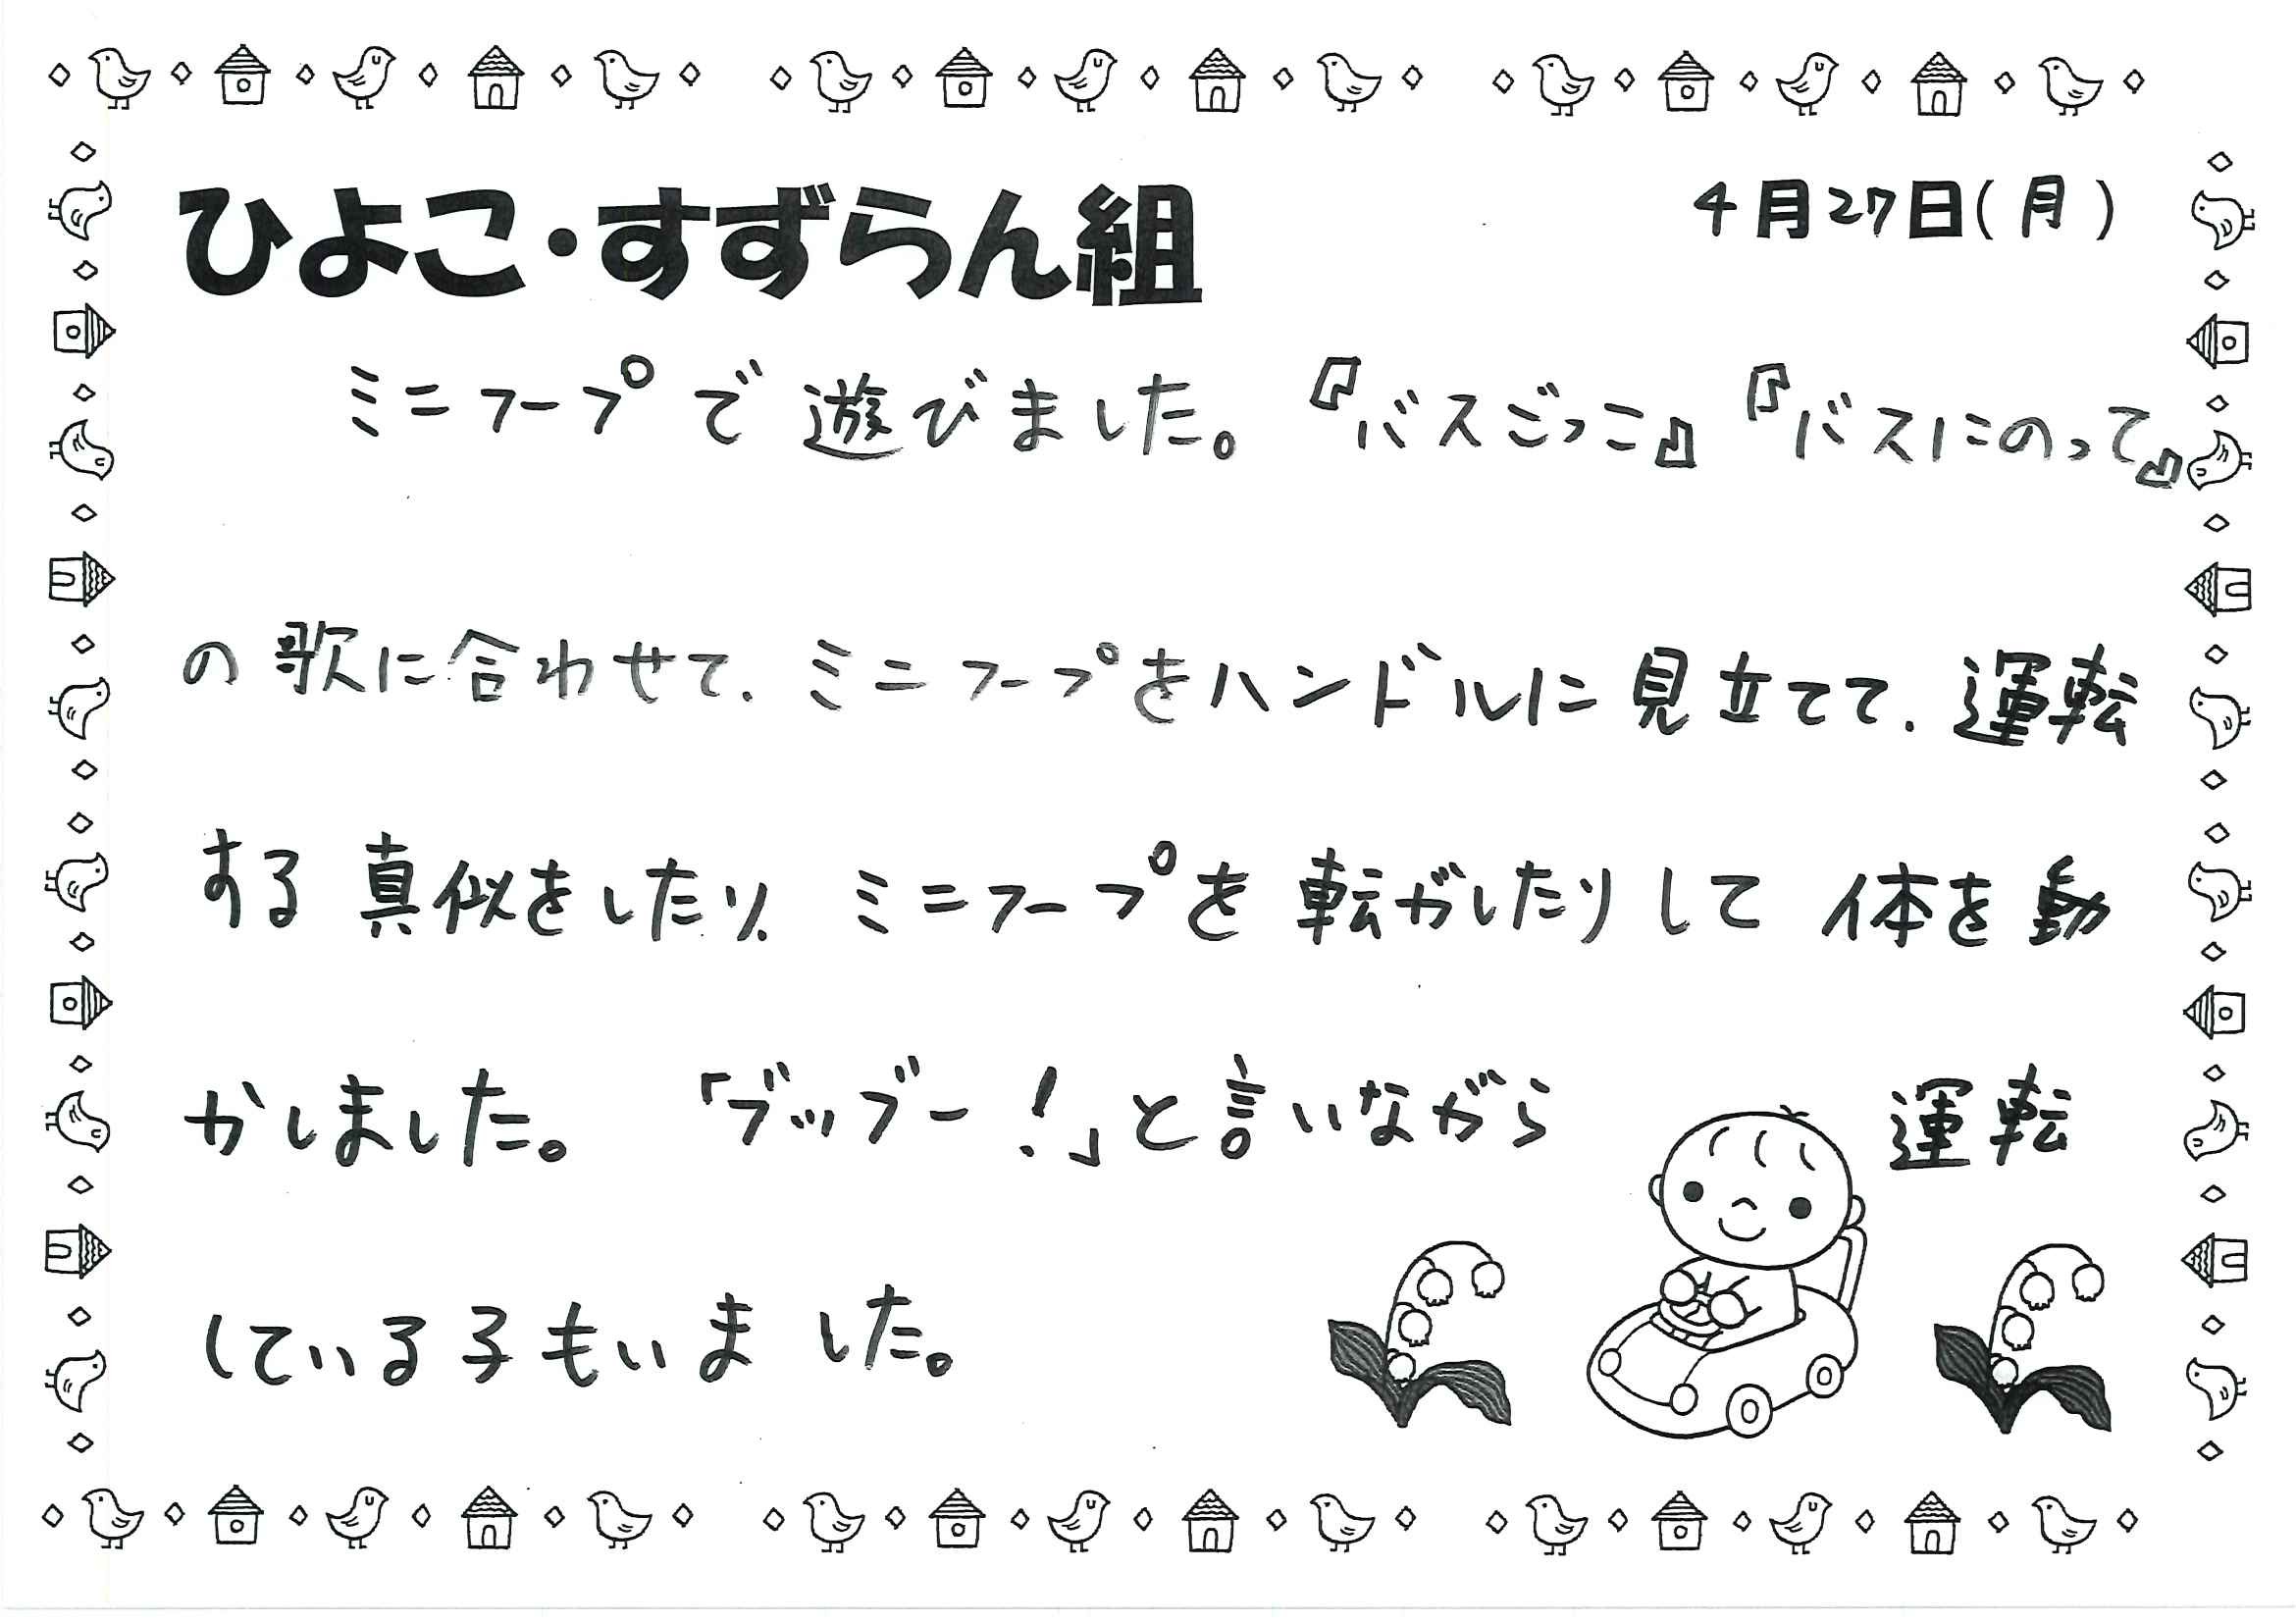 ひよこ・すずらん組
4月27日(月)
ミニフープで遊びました。『バスごっこ』『バスにのって』
の歌に合わせて、ミニフープをハンドルに見立てて、運転
する真似をしたり、ミニフープを転がしたりして体を動
かしました。「ブッブー!」と言いながら運転
している子もいました。